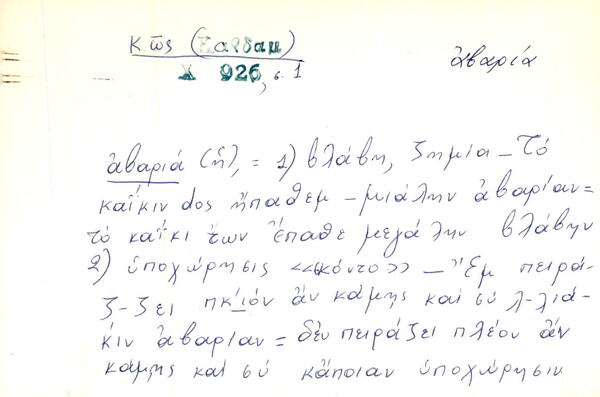 Κῶς (Καρδαμ)
Χ 926, σ. 1
ἀβαρία
ἀβαριά (ἡ), = 1) βλάβη, ζημία – Τὸ
καΐκιν dος ἤπαθεμ – μιάλην ἀβαρίαν =
τὸ καΐκι των ἔπαθε μεγάλην βλάβην
2) ὑποχώρησις «σκόντο» – Ἒμ πειρά-
ζ-ζει πκιὸν ἂν κάμῃς καὶ σὺ λ-λιά-
κιν ἀβαρίαν = δὲν πειράζει πλέον ἂν
κάμῃς καὶ σὺ κἄποιαν ὑποχώρησιν